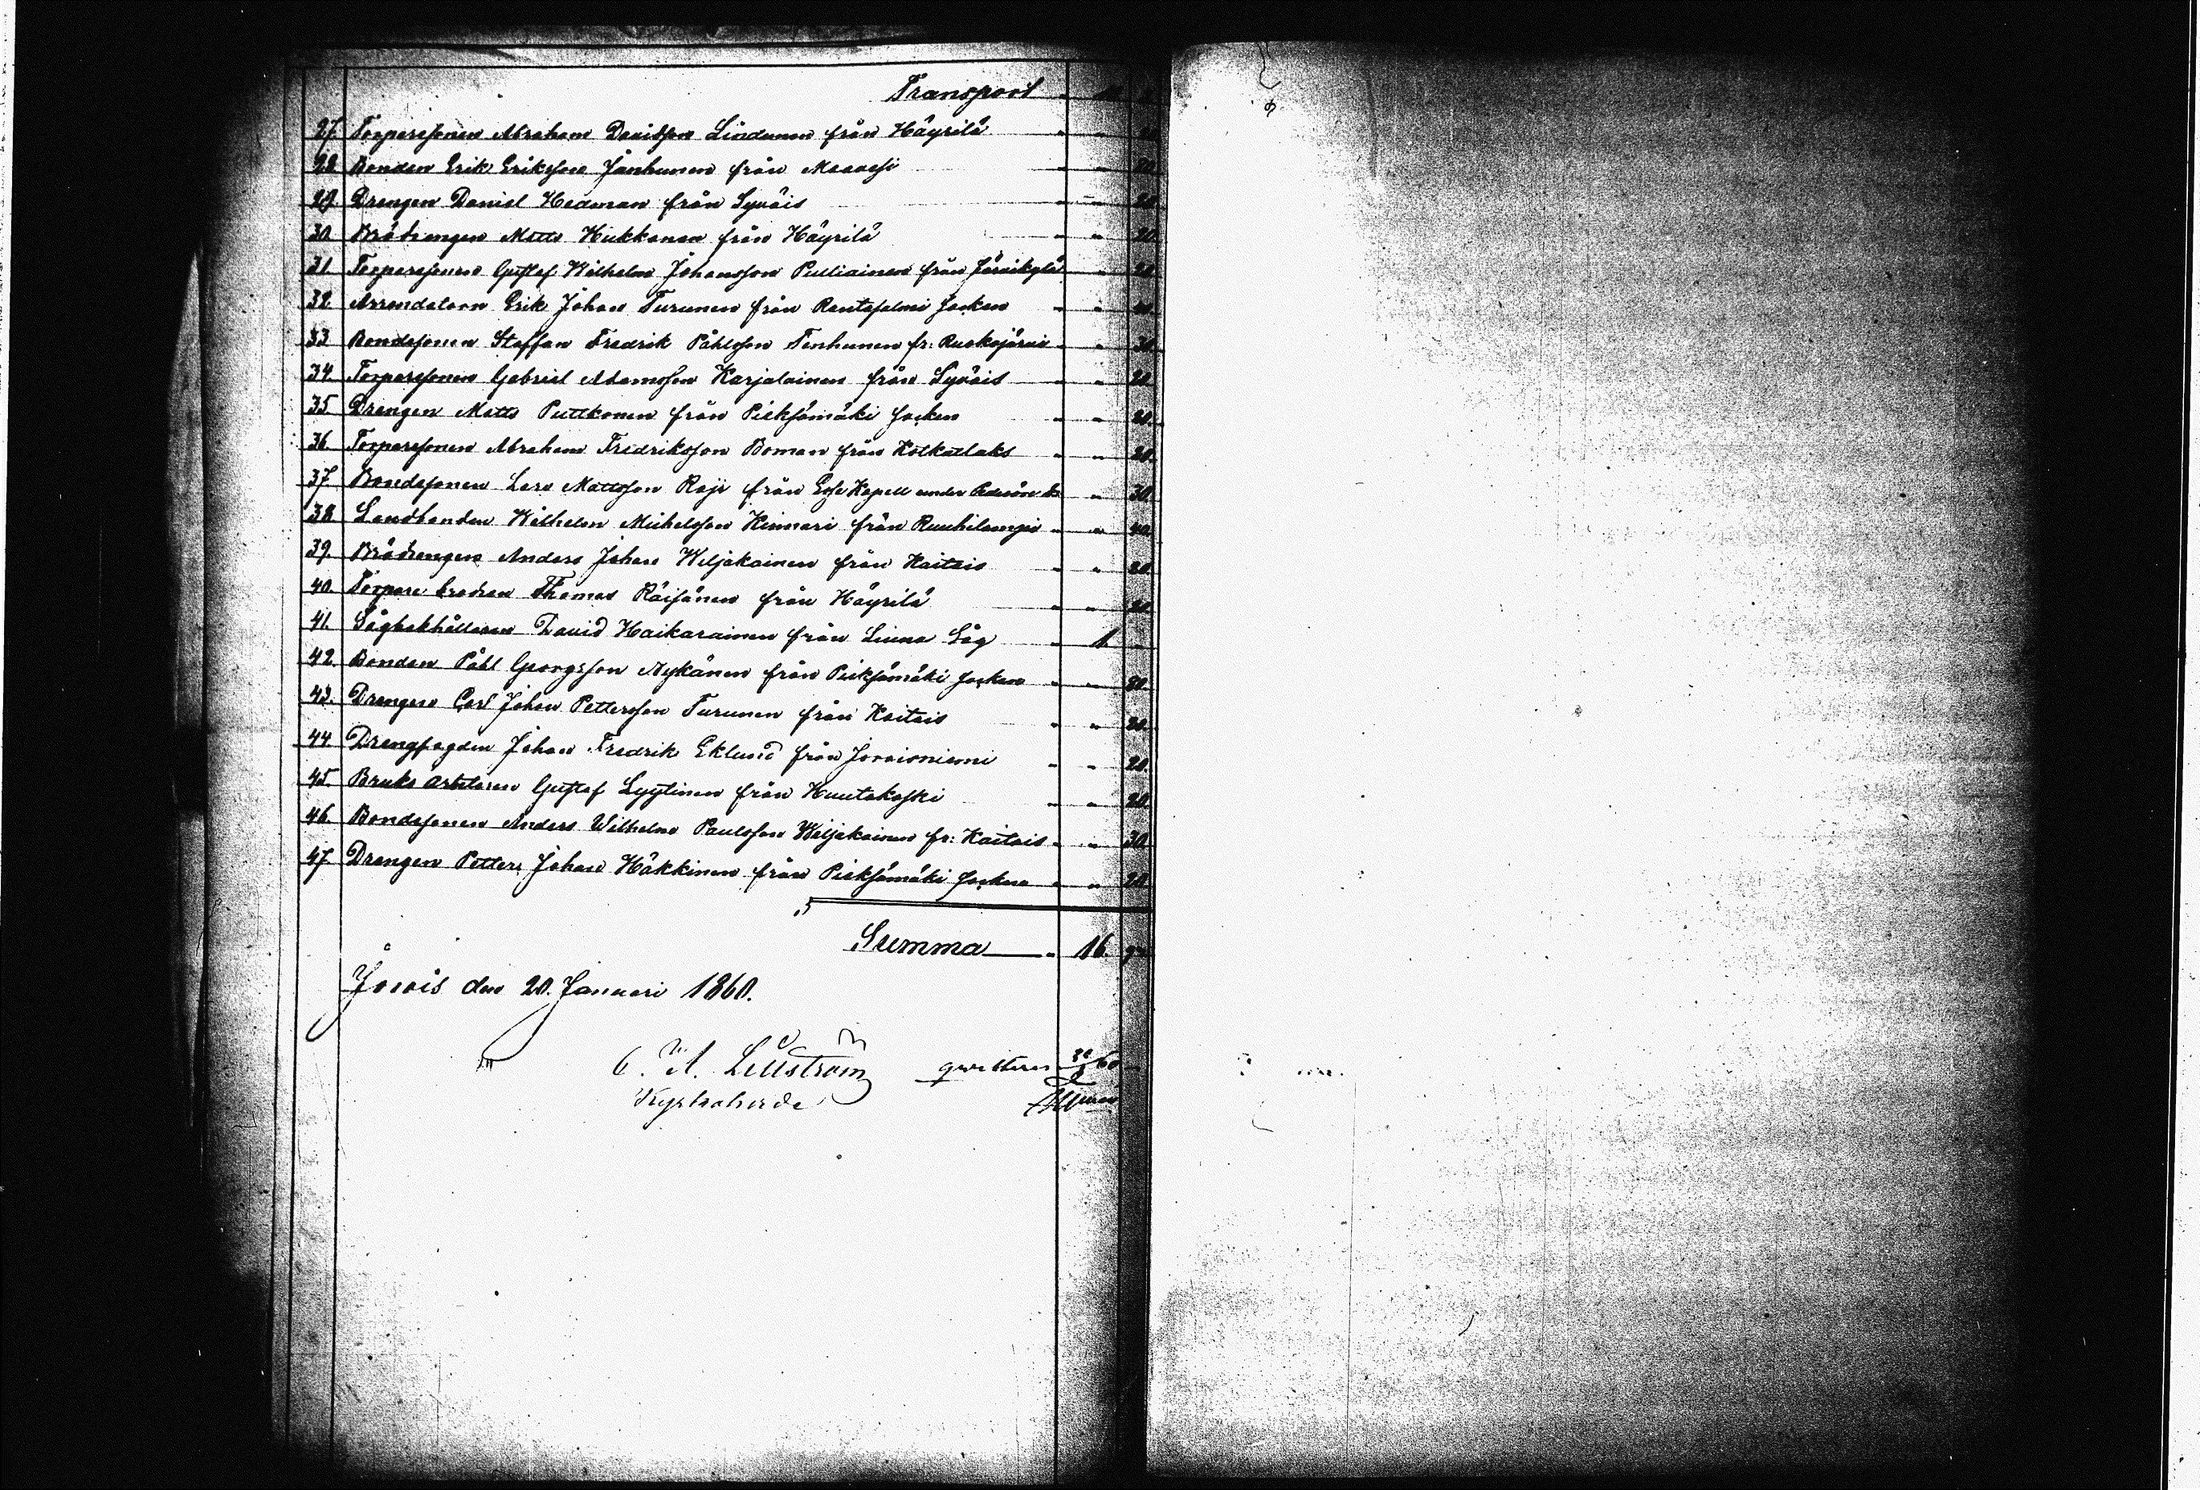 Transport
27. Torparesonen Abraham Davidsson Lindunen från Häyrilä " "
28 Bonden Erik Eriksson Janhunen från Maavesi " "
29. Drengen Daniel Hedman från Syväis " " 20
30 Brödrengen Matts Hukkanen från Häyrilä " " 20.
31 Torparesonen Gustaf Wilhelm Johansson Pulliainen från Järvikylä " 20
32. Arrendatorn Erik Johan Turunen från Rantasalmi Socken " "
33 Bondesonen Staffan Fredrik Påhlsson Tenhunen fr: Ruokojärvi " " 30
34. Torparesonen Gabriel Adamsson Karjalainen från Syväis " " 20
35 Drengen Matts Puttkonen från Pieksämäki Socken " " 20.
36. Torparesonen Abraham Fredriksson Boman från Kotkatlaks " " 20.
37. Bondesonen Lars Mattsson Raji från Esse Kapell under Pedersöre " 30
38 Landbonden Wilhelm Michelsson Kinnari från Ruuhilampi " " 40.
39. Brödrengen Anders Johan Wiljakainen från Kaitais " " 20
40. Torpare brodren Thomas Räisänen från Häyrilä " " 20
41. Sågbokhållaren David Haikarainen från Liuna Såg " 1.
42 Bonden Påhl Georgsson Nykänen från Pieksämäki Socken " "
43. Drengen Carl Johan Pettersson Turunen från Kaitais " " 20
44 Drengfogden Johan Fredrik Eklund från Joroisniemi " " 20.
45. Bruks arbetaren Gustaf Lyytinen från Huutokoski " " 20.
46. Bondesonen Anders Wilhelm Paulsson Wiljakainen fr: Kaitais " " 30
47. Drengen Petter Johan Häkkinen från Pieksämäki Socken " " 20
Summa " 16.
Jorois den 20. Januari 1860.
C. A. Lillström qvitteras
Kyrkoherde